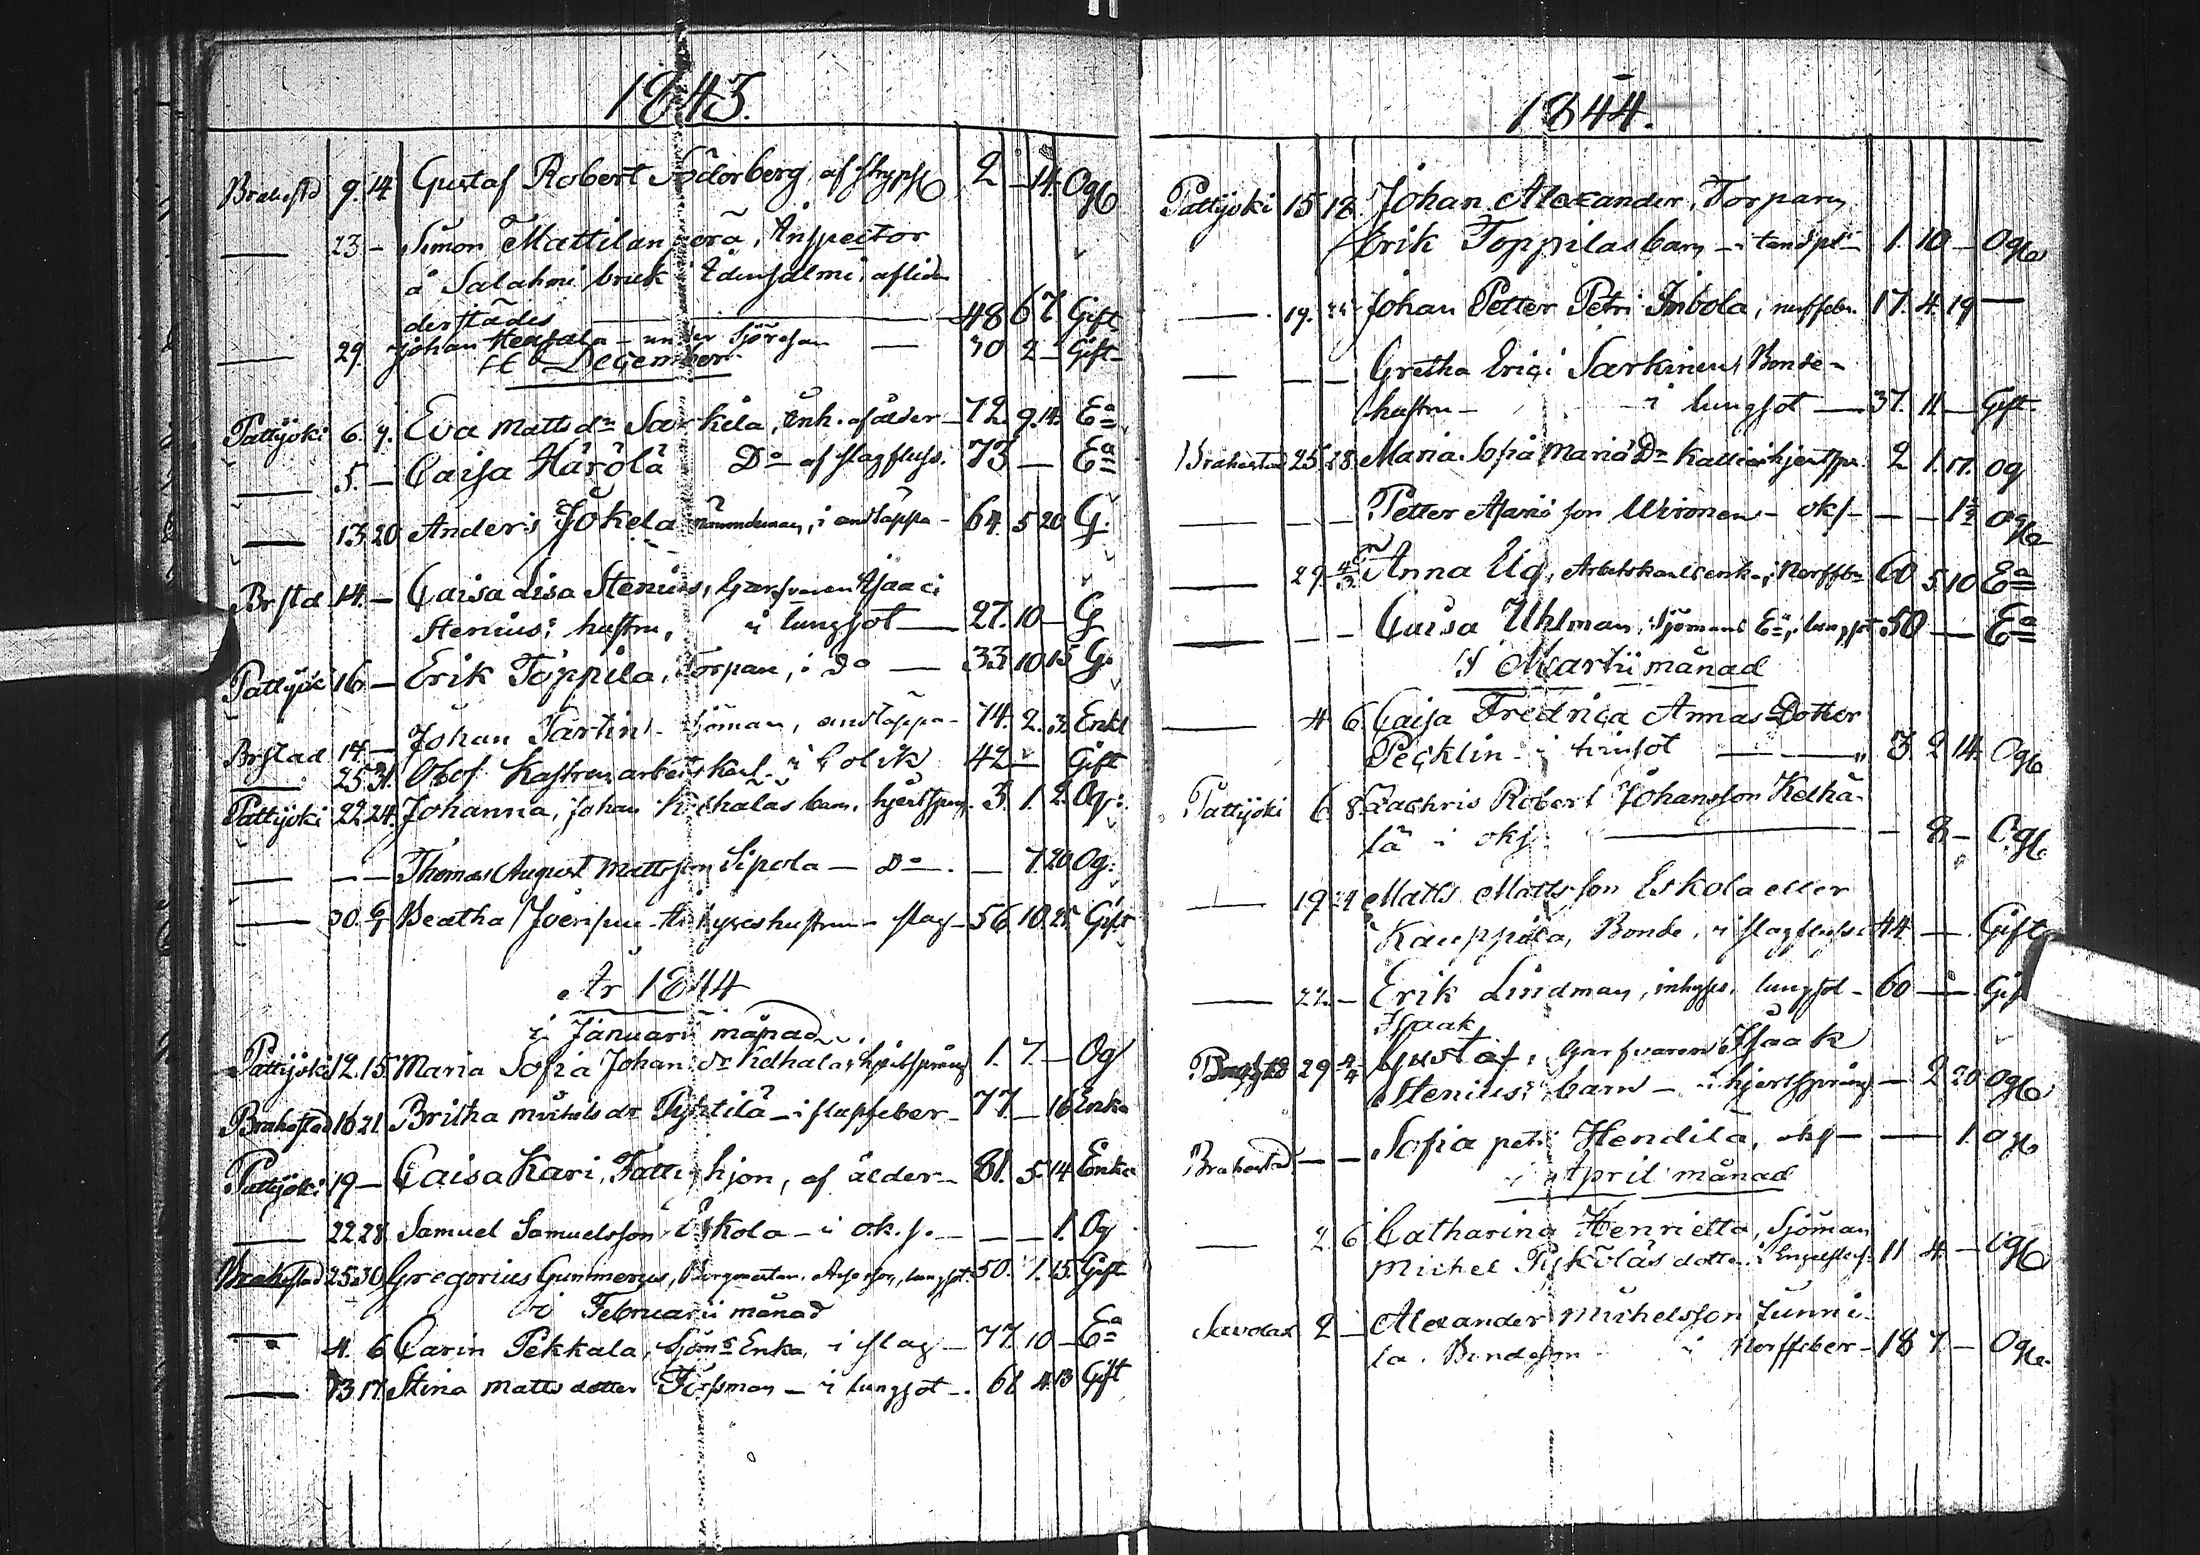 1843.
Brahestd 9. 14 Gustaf Robert Söderberg, af strypsj 2 – 14. OgG
— 23 – Simon Mattilanperä, Inspector
å Salahmi bruk i Idensalmi, afliden
derstädes — 48 6 7 Gift
— 29. Johan — under Sjöresan — 30 2 – Gift
i December
Pattijoki 6. 9. Eva Matts dr Sarkela, Enh. af ålder – 72. 9. 14. Ea
— 5. – Caisa Härölä Do af slagfluss. 73 — Ea
— 13. 20 Anders Jokela nämndeman, i andtäppa – 64. 5 20 G.
Brstad 14. – Caisa Lisa Stenius, Garfvaren Isaaci
Stenius: hustru, i lungsot — 27. 10 – G
Pattijoki 16. – Erik Toppila, Torpare, i Do — 33. 10 15 G.
Brstad 14. – Johan Sjöman, andtäppa – 74. 2. 3. Enkl
— 25 31. Olof Kastren arbetskarl i Colik 42 — Gift
Pattijoki 22. 24. Johanna, Johan barn, hjertsprång. 3. 1. 2. Og:
— – – Thomas August Mattsson Sipola – Do –. — 7. 20 Og.
— 30. 6/1 Beatha hustru – slag – 56 10. 25. Gift
År 1844
i Januarii månad
Pattijoki 12. 15. Maria Sofia Johan dr Kelhala, hjertsprång 1. 7. – Og
Brahestad 16 21. Britha Michels dr Pyhtilä – i slagfeber – 77 – 16 Enka
Pattijoki 19 – Caisa Kari, Fattighjon, af ålder – 81. 5. 14 Enka
— 22. 28. Samuel Samuelsson Eskola – i ok. s. – — — 1. Og
Brahestad 25 30 Gregorius Gummerus, Borgmästare, lungsot. 50. 1. 15. Gift
i Februarii månad
— 4. 6 Carin Pekkala, Sjöms Enka, i slag – 77. 10 – Ea
— 13. 17. Stina Matts dotter Forssman – i lungsot –. 61 4. 13 Gift
1844.
Pattijoki 15 18. Johan Alexander, Torparn
Erik Toppilas barn – i tandspr – 1. 10 – OgG
—. 19. Johan Petter Petri Inbola, nerffeber. 17. 4. 19 —
— – – Gretha Erici Sarkinens Bonde-
hustru – – i lungsot — 37. 11 – Gift.
Brahestad 25. 28. Maria Sofia Maria Dr hjertspr. 2 1. 17. Og
— – – Petter Maria son Wironen – oks – — – 1½ OgG
— 29. 4/3 Anna Ug, Arbetskarls enka, i Nerffbr 60 5 10 Ea
— – – Caisa Uhlman, Sjömans Ea, i lungsot. 50 — Ea
I Martii månad
— 4 6. Caisa Fredrica Annas Dotter
Pecklin – i tvinsot — 3. 2 14. OgG
Pattijoki 6. 8. Zachris Robert Johansson Kelha-
la i oks. — – 8 – OgG.
— 19 24 Matts Mattsson Eskola eller
Kauppila, Bonde, i slagfluss 44 —. Gift
— 22. – Erik Lindman, inhyses. lungsot – 60 — Gif
Isaak
29 4/4 Gustaf, Garfvaren Isaak
Stenius: barn – i hjertsprång – – 2 20 OgG
Brahestad – – Sofia Petri Hendilä, oks – — 1. OgG
i April månad
— 2. 6. Catharina Henrietta, Sjöman
Michel Pyköläs dotter i Engelska s. 11 4. – OgG
Savolax 2 – Alexander Michelsson Junni-
la. Bondeson i Nerffeber – 18 7. – OgG.